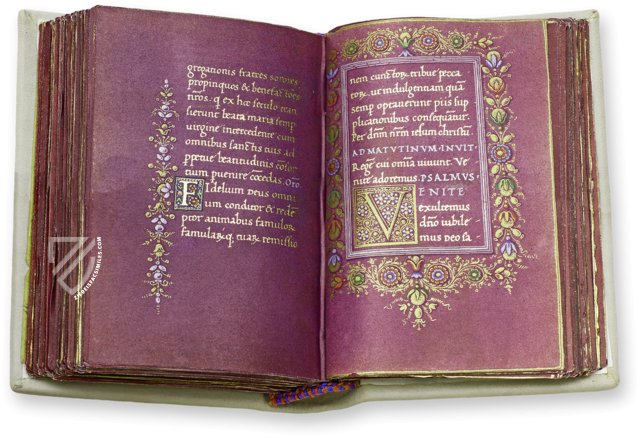 gregationis fratres sorores
propinquos & benefactores
nr̄os. q ex hac seculo tran
sierunt beata maria semp
uirgine intercedente cum
omnibus sanctis tuis ad
ppetue beatitudinis
consor
tium puenire cōcedas. Oro
Fidelium deus omni
um conditor & rede
ptor animabus famulor
famularūq. tuar remissio
nem cunctor. tribue pecca
tor. ut indulgentiam quā
semp optauerunt piis sup
plicationibus consequātur.
Per dn̄m nr̄m iesum christū
AD MATVTINVM·INVIT
Regē cui omīa uiuunt. Ve
nite adoremus. PSALMVS
VENITE
exultemus
dn̄o iubile
mus deo sa
ZIEREISFACSIMILES.COM